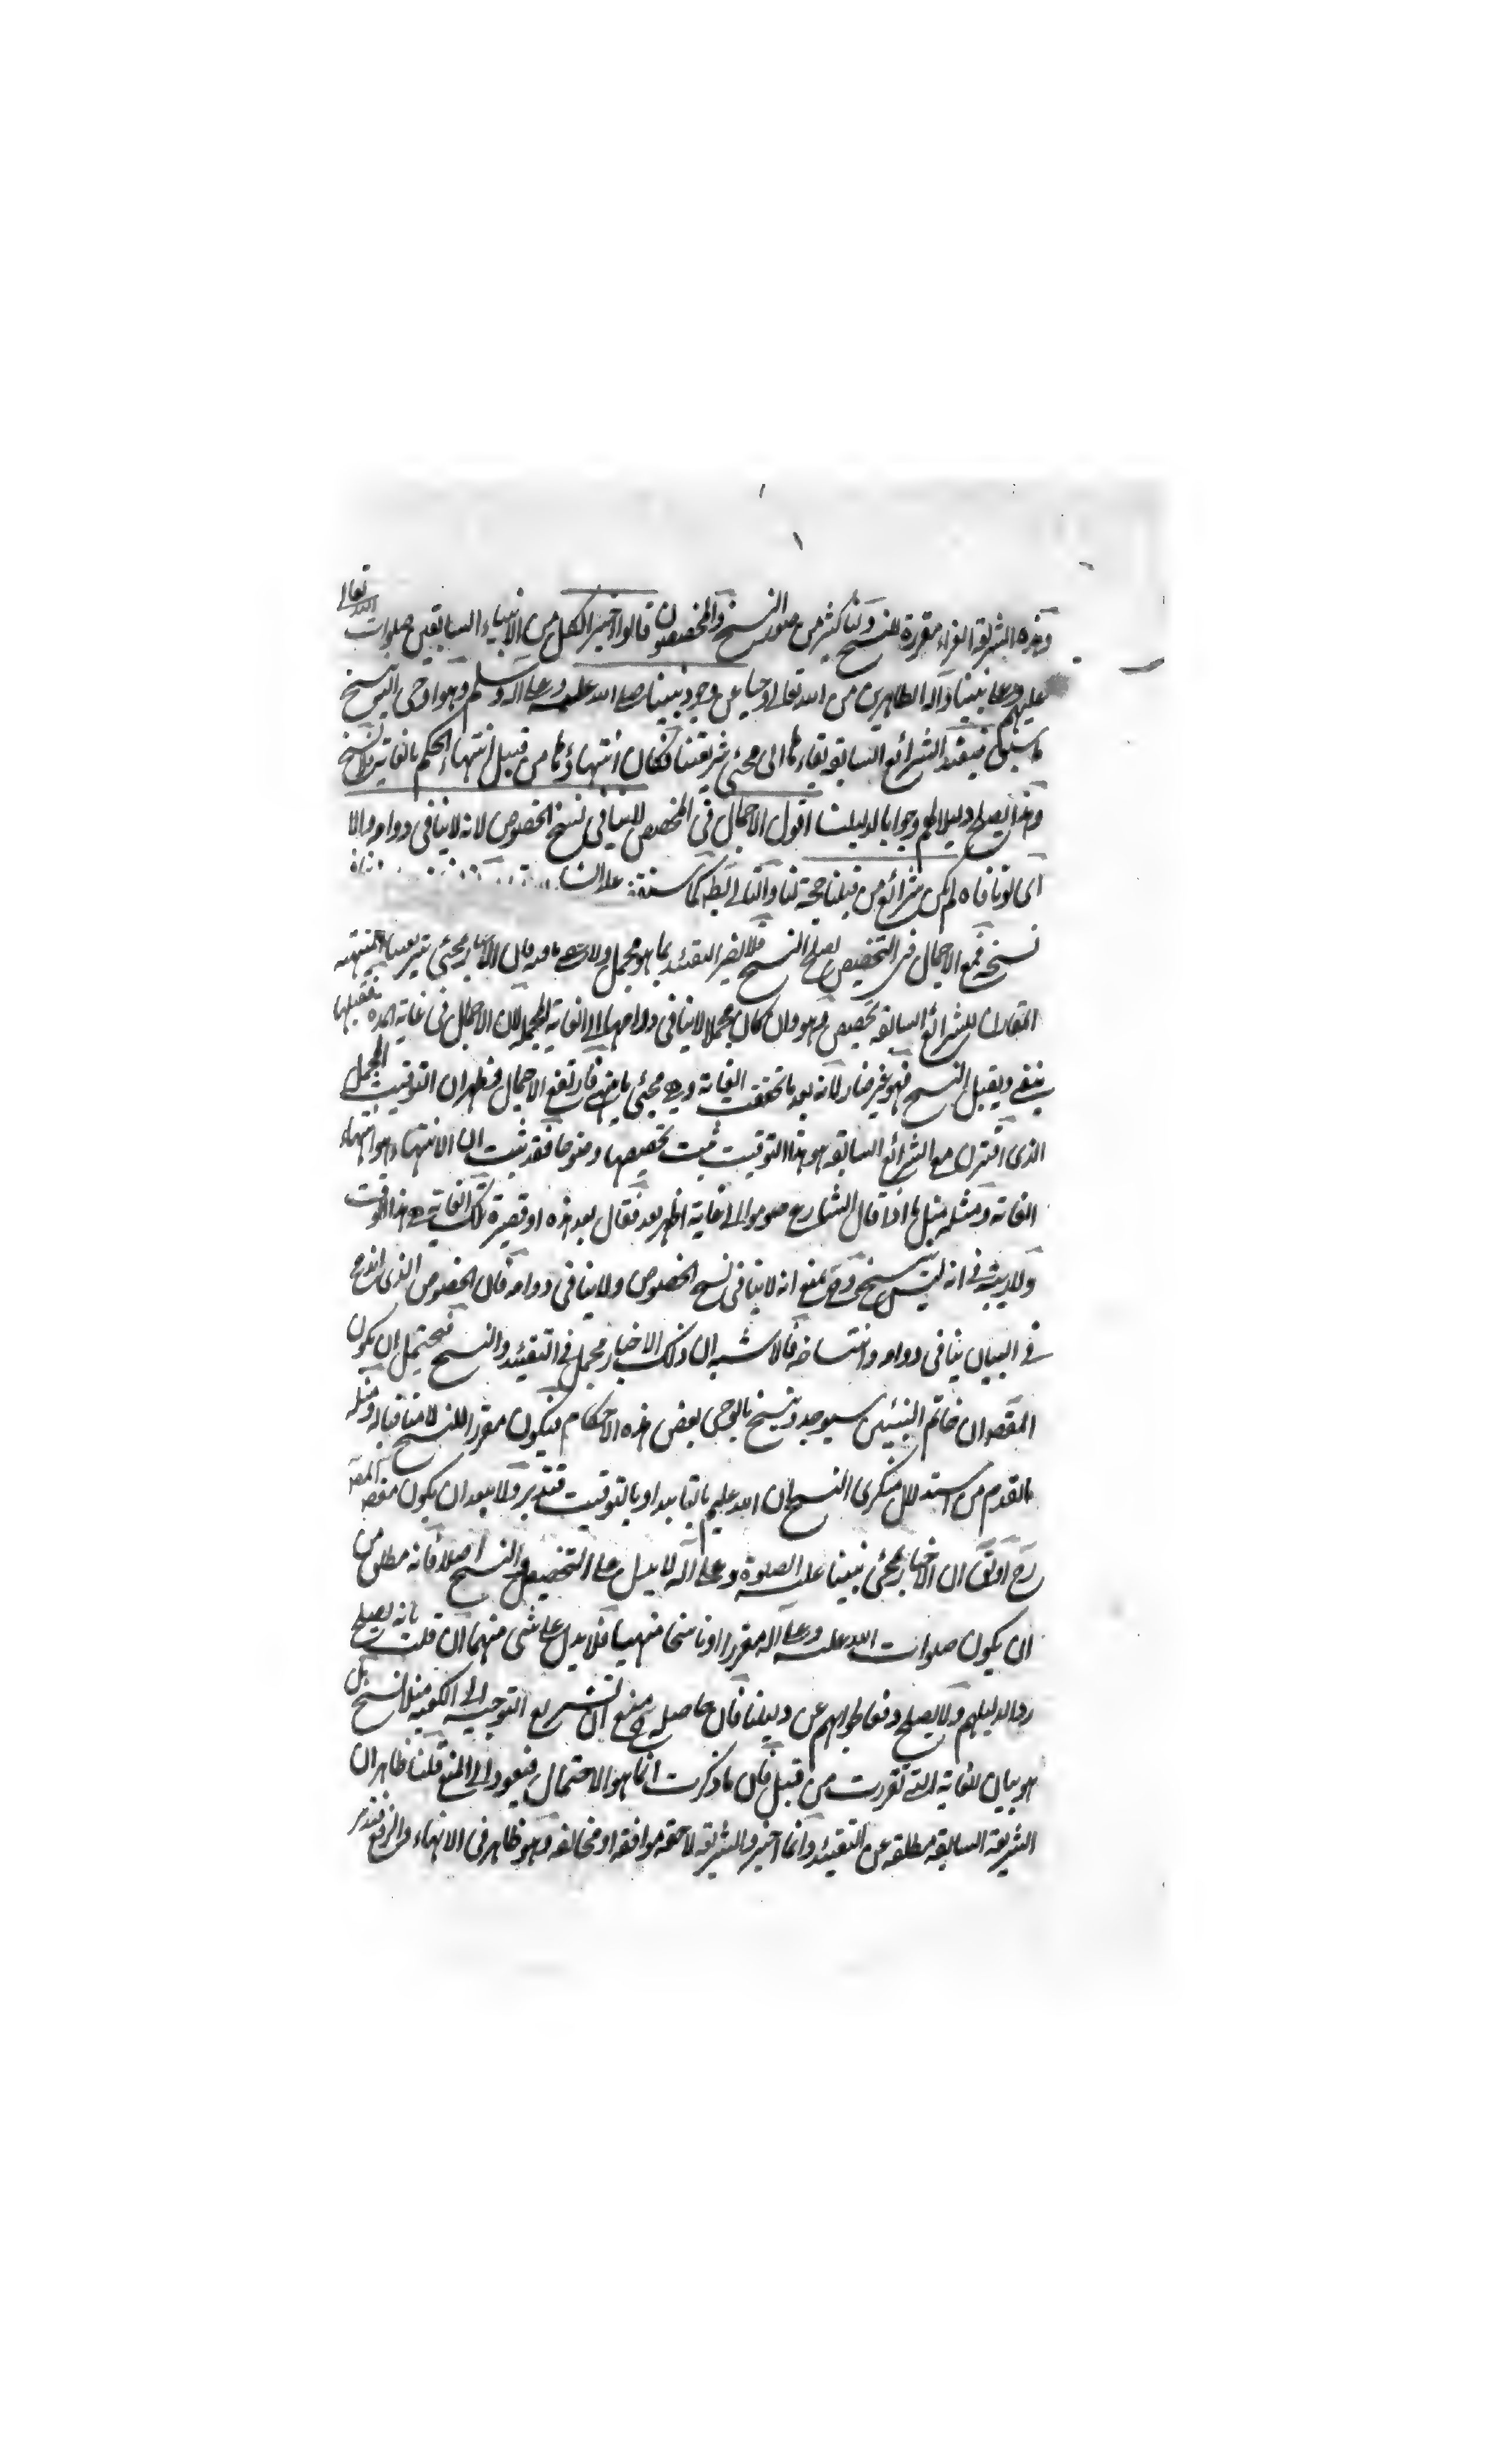 وهذه الشريعة الغراء مقررة للنسخ ولنا كثير من صور النسخ والمخصصون قالوا اخبر الكل من الانبياء السابقين صلوات الله تعالى
عليهم وعلى نبينا وآله الطاهرين من الله تعالى وحيا عن وجود نبينا صلى الله عليه وعلى اله وسلم وهو اوحى اليه بنسخ
ما سبق فيقيد الشرائع السابقة بقاءها الى مجئ شريعتنا فكان انتهاؤها من قبيل انتهاء الحكم بالغاية بلا نسخ
وهذا يصلح دليلا لهم وجوابا لدليلنا اقول الاجمال في المخصص لا ينافي نسخ الخصوص لانه لا ينافي دوامه والا
اى لو نافاه لم يكن شرائع من قبلنا حجة لنا والتالي باطل كما
نسخه فمع الاجمال في التخصيص يصلح النسخ فلا يضر التقييد بما هو مجمل فان الاخبار بمجئ شريعتنا المنتهية
المقارن للشرائع السابقة تخصيص وهو وان كان مجملا لا ينافي دوامها الى الغاية المجملة لان الاجمال في غاية
ينفي ويقبل النسخ فهو غير ضار لانه بعد ما تحققت الغاية وهي مجئ فارتفع الاجمال وظهر ان التوقيت المجمل
الذى اقترن مع الشرائع السابقة هو هذا التوقيت ثبت تخصيصها وضوحا فقد ثبت ان الانتهاء هو انتهاء
الغاية ومثله مثل ما اذا قال الشارع صوموا الى غاية اظهر بعد فقال بعد هذه او قصيرة تلك الغاية هي هذا الوقت
ولا ريب في انه ليس بنسخ وح نمنع انه لا ينافي نسخ الخصوص ولا ينافي دوامه فان الخصوص الذى
في البيان ينافي دوامه وانتساخه فالاشبه ان ذلك الاخبار مجمل في التقييد والنسخ فيحتمل ان يكون
المقصود ان خاتم النبيين سيوجد وينسخ بالوحى بعض هذه الاحكام فيكون مقررا للنسخ لا منافيا له ومثله
ما تقدم من استدلال منكرى النسخ بان الله عليم بالتابيد او بالتوقيت فتدبر ولا يبعد ان يكون
رح اوثق ان الاخبار بمجئ نبينا عليه الصلوة وعلى اله لا يدل على التخصيص والنسخ اصلا فانه مطلق من
ان يكون صلوات الله عليه وعلى اله مقررا او ناسخا منهيا فلا يدل على شئ منهما ان قلت بانه يصلح
ردا لدليلهم ولا يصلح دفعا لجوابهم عن دليلنا فان حاصله منع ان تشريع التوجيه الى الكعبة مثلا نسخ بل
هو بيان للغاية التي تقررت من قبل فان ما ذكرت انما هو الاحتمال فيعود الى المنع قلنا ظاهر ان
الشريعة السابقة مطلقة عن التقييد وانما اخبر والشريعة لاحقة موافقة او مخالفة وهو ظاهر في الانهاء والرفع فتدبر